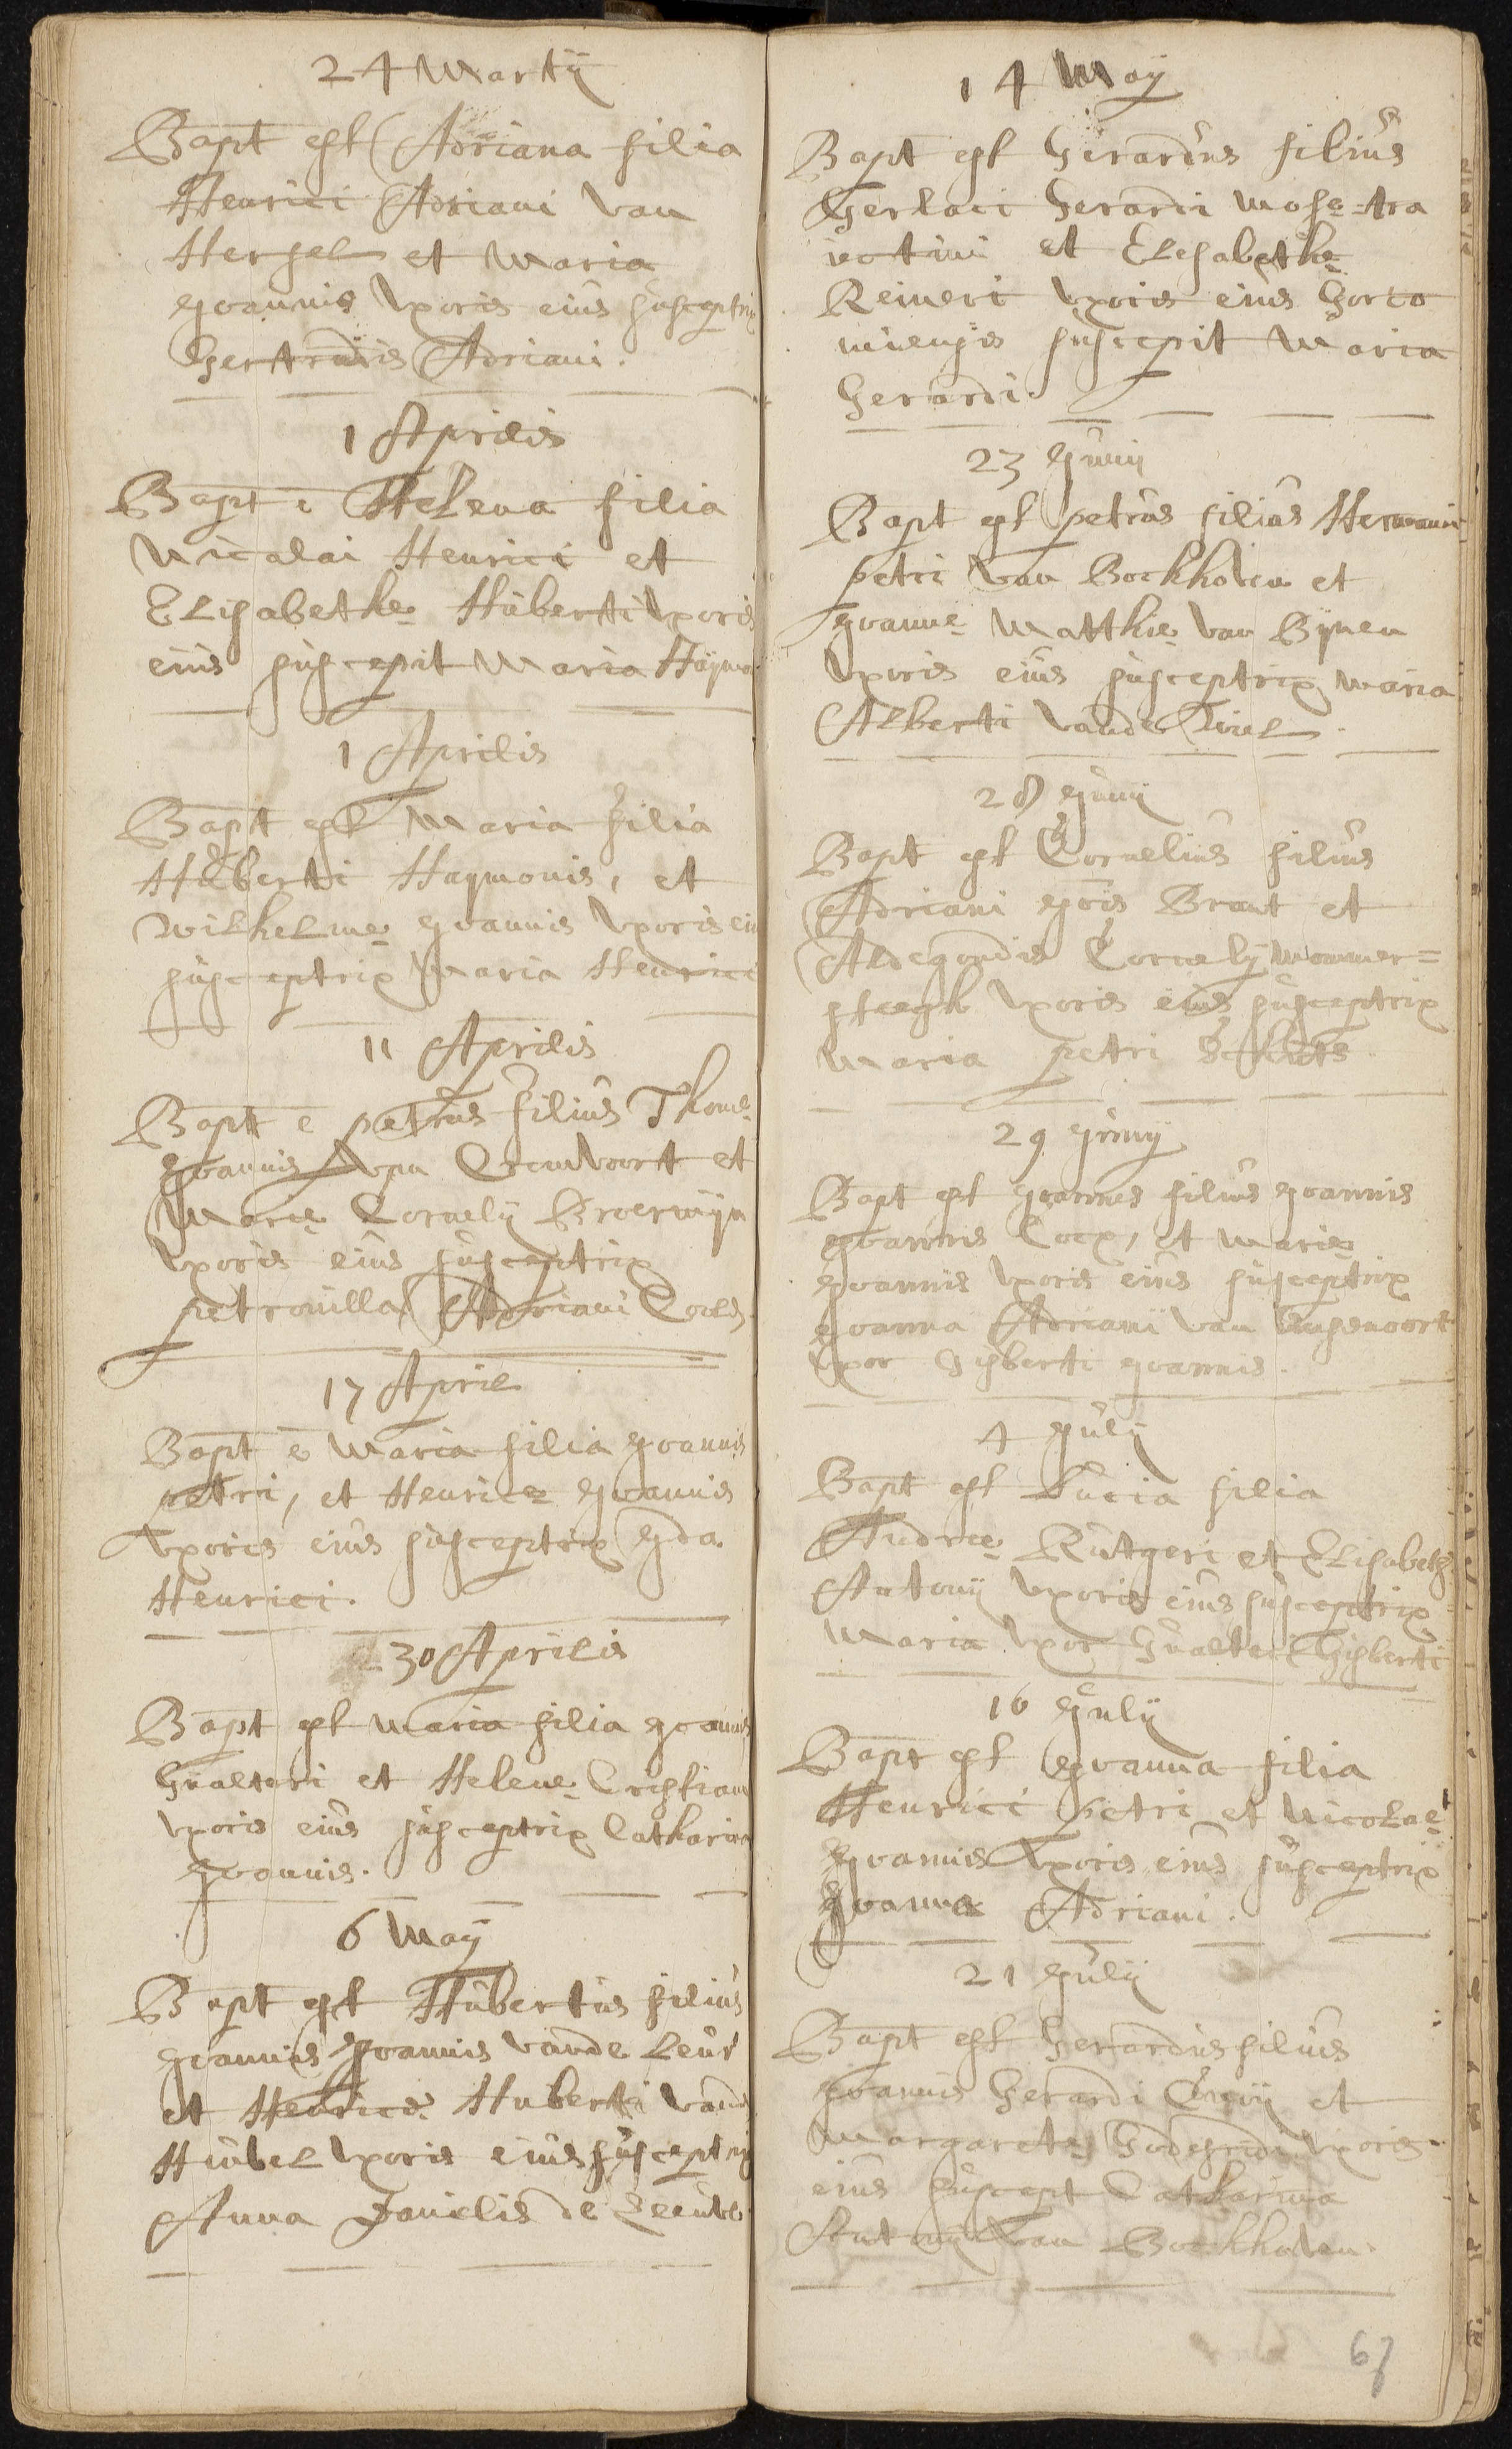 24 Martÿ
Bapt est Adriana filia
Henrici Adriani van
Hersel et Maria
Joannis Vxoris eius susceptrix
Gertrudis Adriani.
1 Aprilis
Bapt e Helena filia
Nicolai Henrici et
Elisabethe Huberti Vxoris
eius suscepit Maria Haymo
1 Aprilis
Bapt est Maria filia
Huberti Haymonis, et
Wilhelme Joannis Vxoris eiu
susceptrix Maria Henrici
11 Aprilis
Bapt e petrus filius Thome
Joannis van Cromvoort et
Marie Cornelÿ Broerwijn
Vxoris eius susceptrix
petronilla Adriani Cools.
17 April
Bapt e Maria filia Joannis
petri, et Henrice Joannis
Vxoris eius susceptrix Ida
Henrici.
30 Aprilis
Bapt est Maria filia Joannis
Gualteri et Helene Cristiani
vxoris eius susceptrix Catharina
Joannis.
6 Maÿ
Bapt est Hubertus filius
Joannis Joannis vande Leur
et Henrice Huberti vand
Huevel Vxoris eius susceptrix
Anna Danielis de Leeuw
14 Maÿ
Bapt est Gerardus filius
Gerlaci Gerardi Mose-tra
iectini et Elesabethe
Reineri Vxoris eius Gorco
miensis suscepit Maria
Gerardi.
23 Junÿ
Bapt est petrus filius Hermanni
petri van Bockhoven et
Joanne Matthie van Bijnen
Vxoris eius susceptrix Maria
Alberti vande Wiel.
28 Junÿ
Bapt est Cornelius filius
Adriani Jois Brant et
Aldegondis Cornelÿ Mommer=
steegh Vxoris eius susceptrix
Maria petri
29 Junÿ
Bapt est Joannes filius Joannis
Joannis Cocx, et Marie
Joannis Vxoris eius susceptrix
Joanna Adriani van Engenoort
Vxor Gisberti Joannis.
4 Julÿ
Bapt est Lucia filia
Andree Rutgeri et Elisabeth
Antonÿ Vxoris eius susceptrix
Maria Vxor Gualteri Gisberti
16 Julÿ
Bapt est Joanna filia
Henrici petri et Nicolae
Joannis Vxoris eius susceptrix
Joanna Adriani.
21 Julÿ
Bapt est Gerardus filius
Joannis Gerardi et
Margarete Godefridi Vxoris
eius suscept Catharina
Antonÿ van Bockhoven.
67